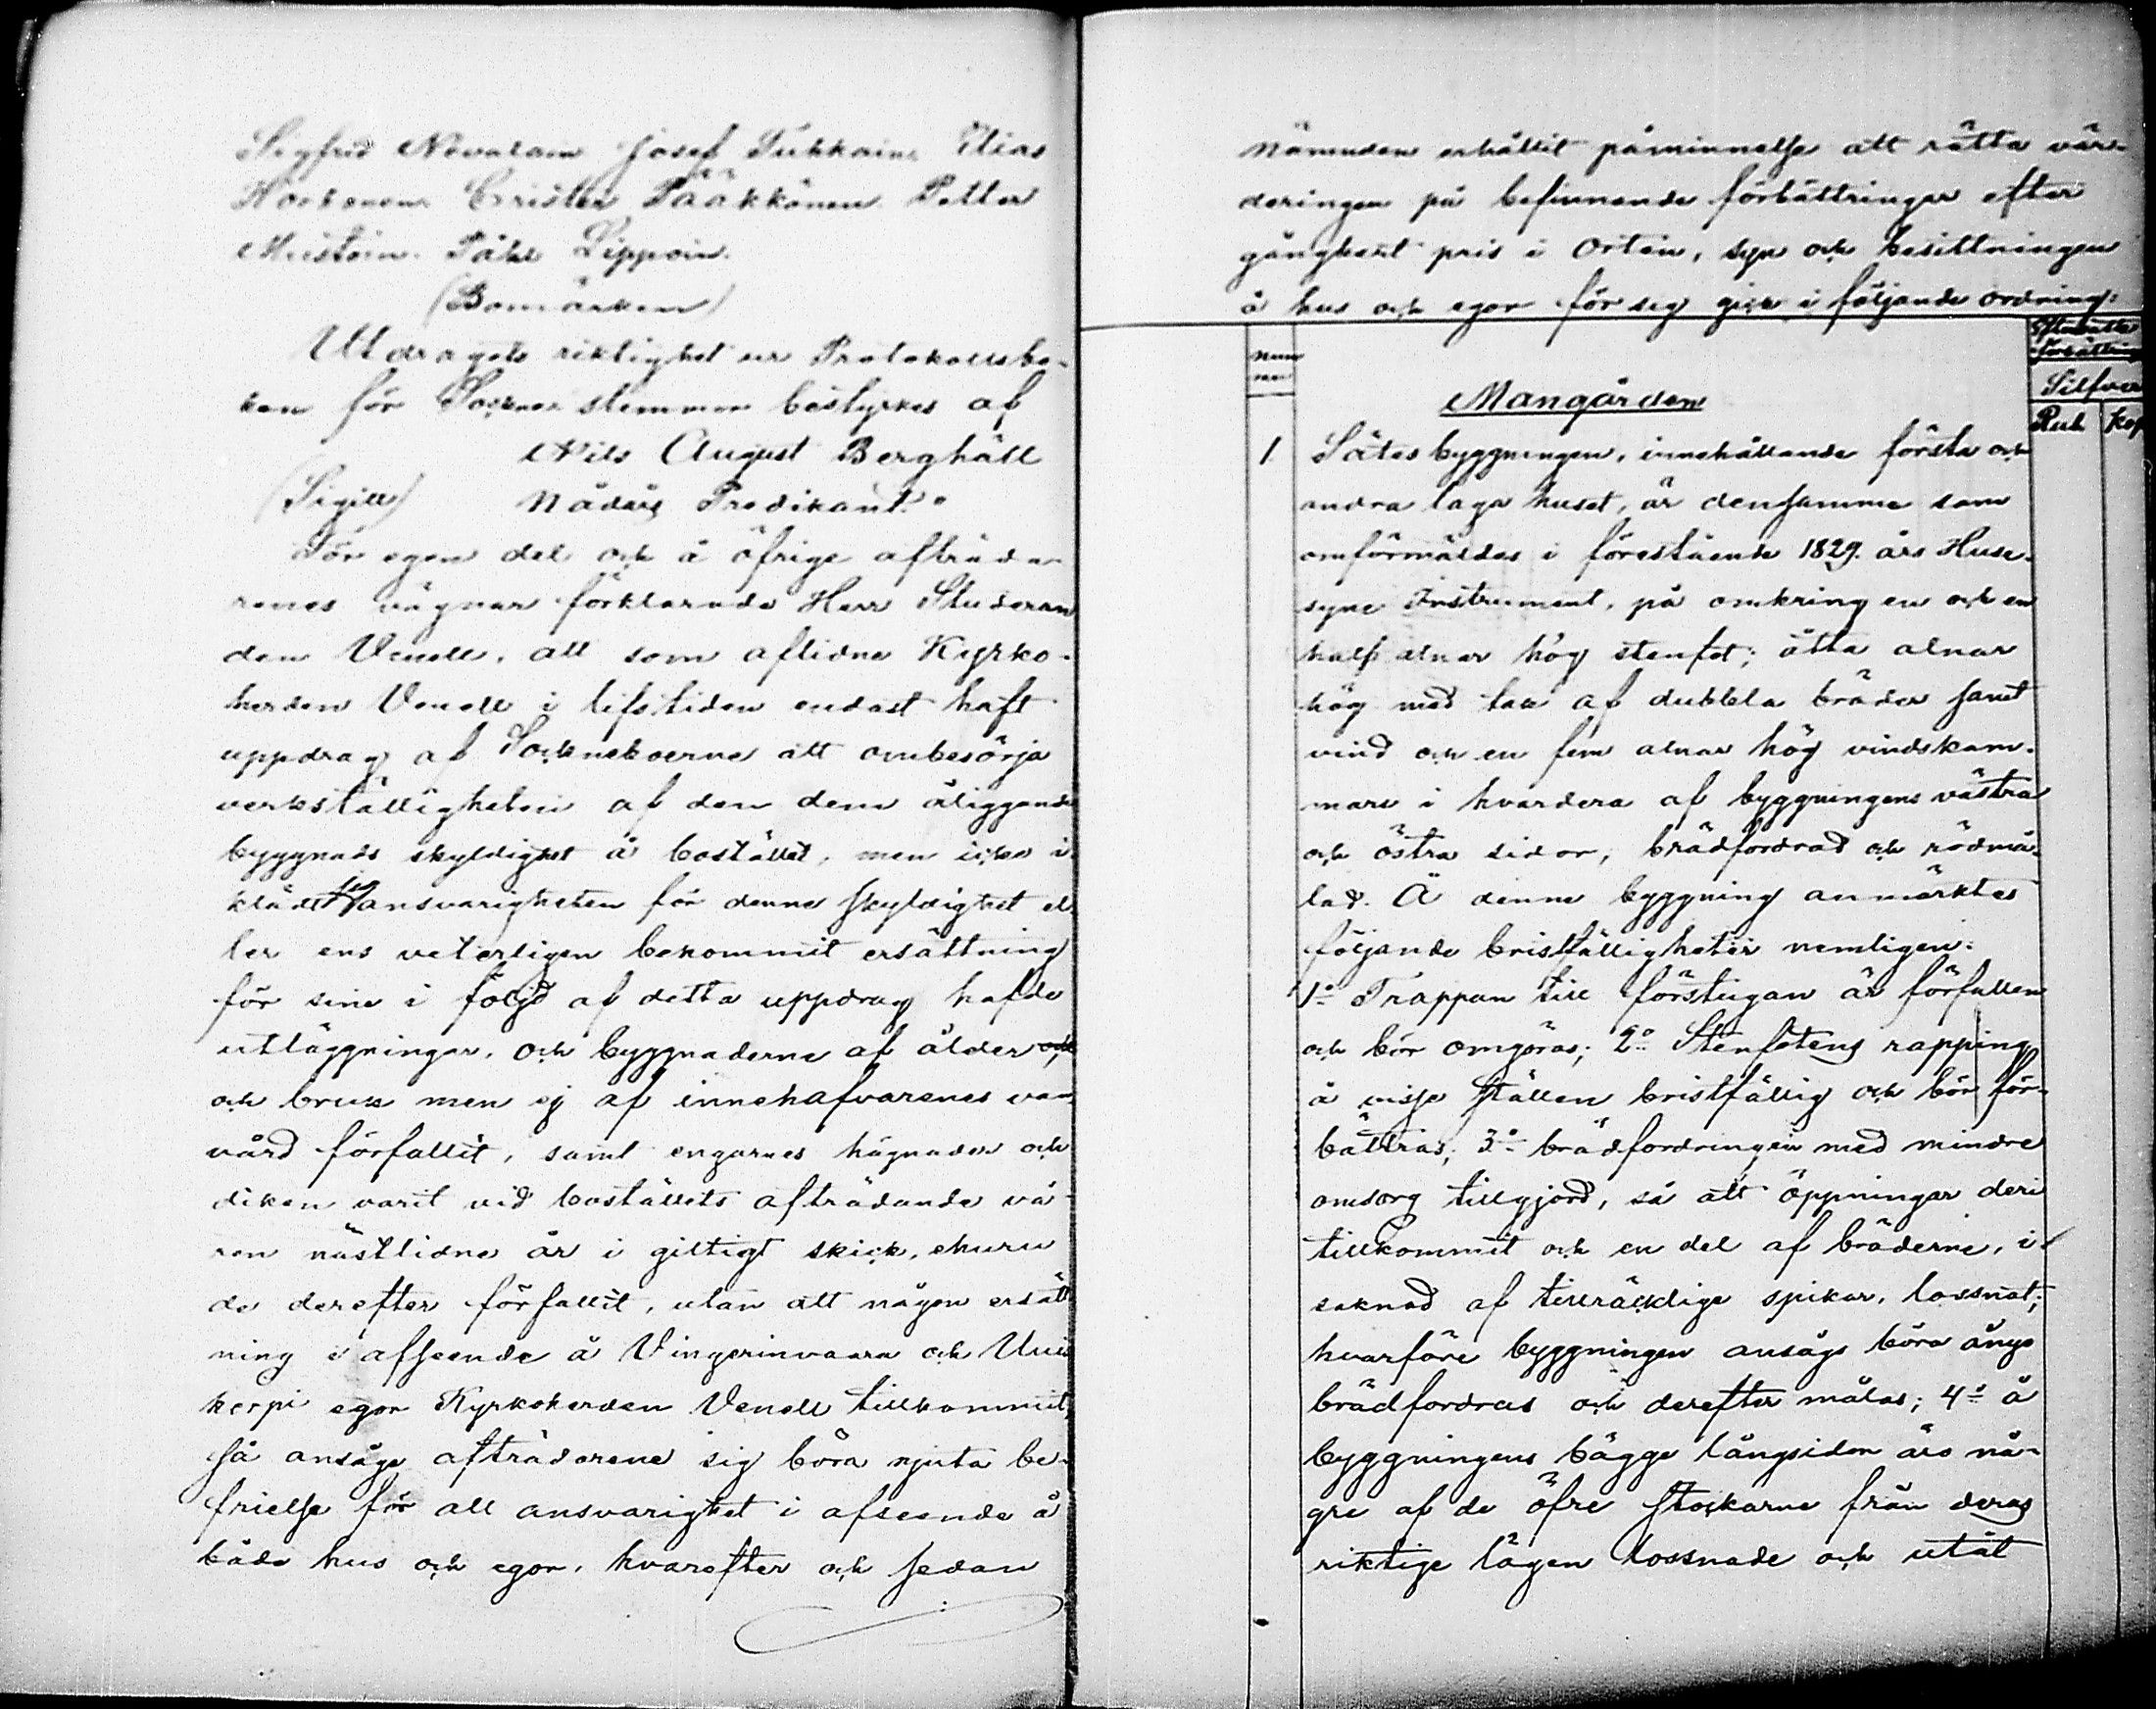 Sigfrid Novalain Josef Tuhkain Elias
Horkonen Crister Pääkkönen Petter
Mustoin. Påhl Lippoin.
(Bomärken)
Utdragets riktighet ur Protokollsbo-
ken för Socknestemmor bestyrkes af
Nils August Berghäll
(Sigill) Nådårs Predikant."
För egen del och å öfrige afträda-
renes vägnar förklarade Herr Studeran
den Venell, att som aflidne Kyrko-
herden Venell i lifstiden endast haft
uppdrag af Socknekoerne att ombesörja
verkställigheten af den dem åliggande
byggnads skyldighet å bostället, men icke i
klädt sig ansvarigheten för denna skyldighet el
ler ens veterligen bekommit ersättning
för sine i följd af detta uppdrag hafde
utläggningar, och byggnaderne af ålder och
och bruk men ej af innehafvarenes van-
vård förfallit, samt engarnes hägnader och
diken varit vid boställets afträdande vå-
ren nästlidne år i giltigt skick, ehuru
de derefter förfallit, utan att någon ersätt
ning i afseende å Vingerinvaara och Uusi
kerpi egor Kyrkoherden Venell tillkommit,
så ansåge afträdarene sig böra njuta be-
frielse för all ansvarighet i afseende å
både hus och egor, hvarefter och sedan
nämnden erhållit påminnelse att rätta vär-
deringen på befinnande förbättringar efter
gångbart pris i orten, syn och besittningen
å hus och egor för sig gick i följande ordning:
Num
mer
Förbättring
Silfver
Rub Kop
Mangården
1 Sätesbyggningen, innehållande första och
andra laga huset, är densamma som
omförmäldes i förestående 1829 års Huse-
syne Instrument, på omkring en och en
half alnar hög stenfot; åtta alnar
hög med tak af dubbla bräder samt
vind och en fem alnar hög vindskam-
mare i hvardera af byggningens västra
och östra sidor, brädfordrad och rödmå-
lad. Å denne byggning anmärktes
följande bristfälligheter nemligen:
1:o Trappan till förstugan är förfallen
och bör omgöras; 2:o Stenfotens rapping
å visse ställen bristfällig och bör för-
bättras; 3:o brädfordringen med mindre
omsorg tillgjord, så att öppningar deri
tillkommit och en del af bräderne, i
saknad af tillräcklige spikar, lossnat;
hvarföre byggningen ansågs böra ånyo
brädfordras och derefter målas; 4:o å
byggningens bägge långsidor äro nå-
gre af de öfre stockarne från deras
riktige lägen lossnade och utåt